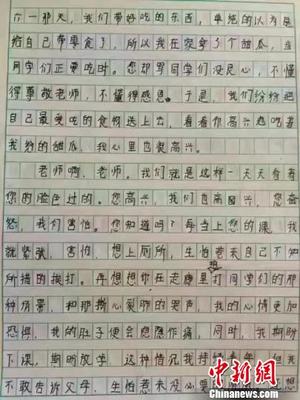 六一那天，我们带好吃的东西，单纯的以为是
给自己带零食了，所以我在家拿了个甜瓜，当
同学们正要吃时。您却骂同学们没良心，不懂
得尊敬老师，不懂得感恩。于是，我们纷纷把
自己最爱吃的食物送上去，看着你高兴起吃着
我粉的甜瓜，我心里也更高兴。
老师啊，老师。我们就是这样一天天看着
您的脸色过的。您高兴，我们自高兴，您奋
怒，我们害怕。您知道吗？每当上您的课，我
就紧张，害怕，想上厕所，生怕惹来自己不知
所措的挨打。再想想你在走廊里打同学们的那
种情景，和那撕心裂肺的哭声，我的心情更加
恐惧，我的肚子便会隐隐作痛，同时，我期盼
下课，期盼放学，这种情况我持续
不敢告诉父母，生怕惹来没必要
中新网
www.chinanews.com